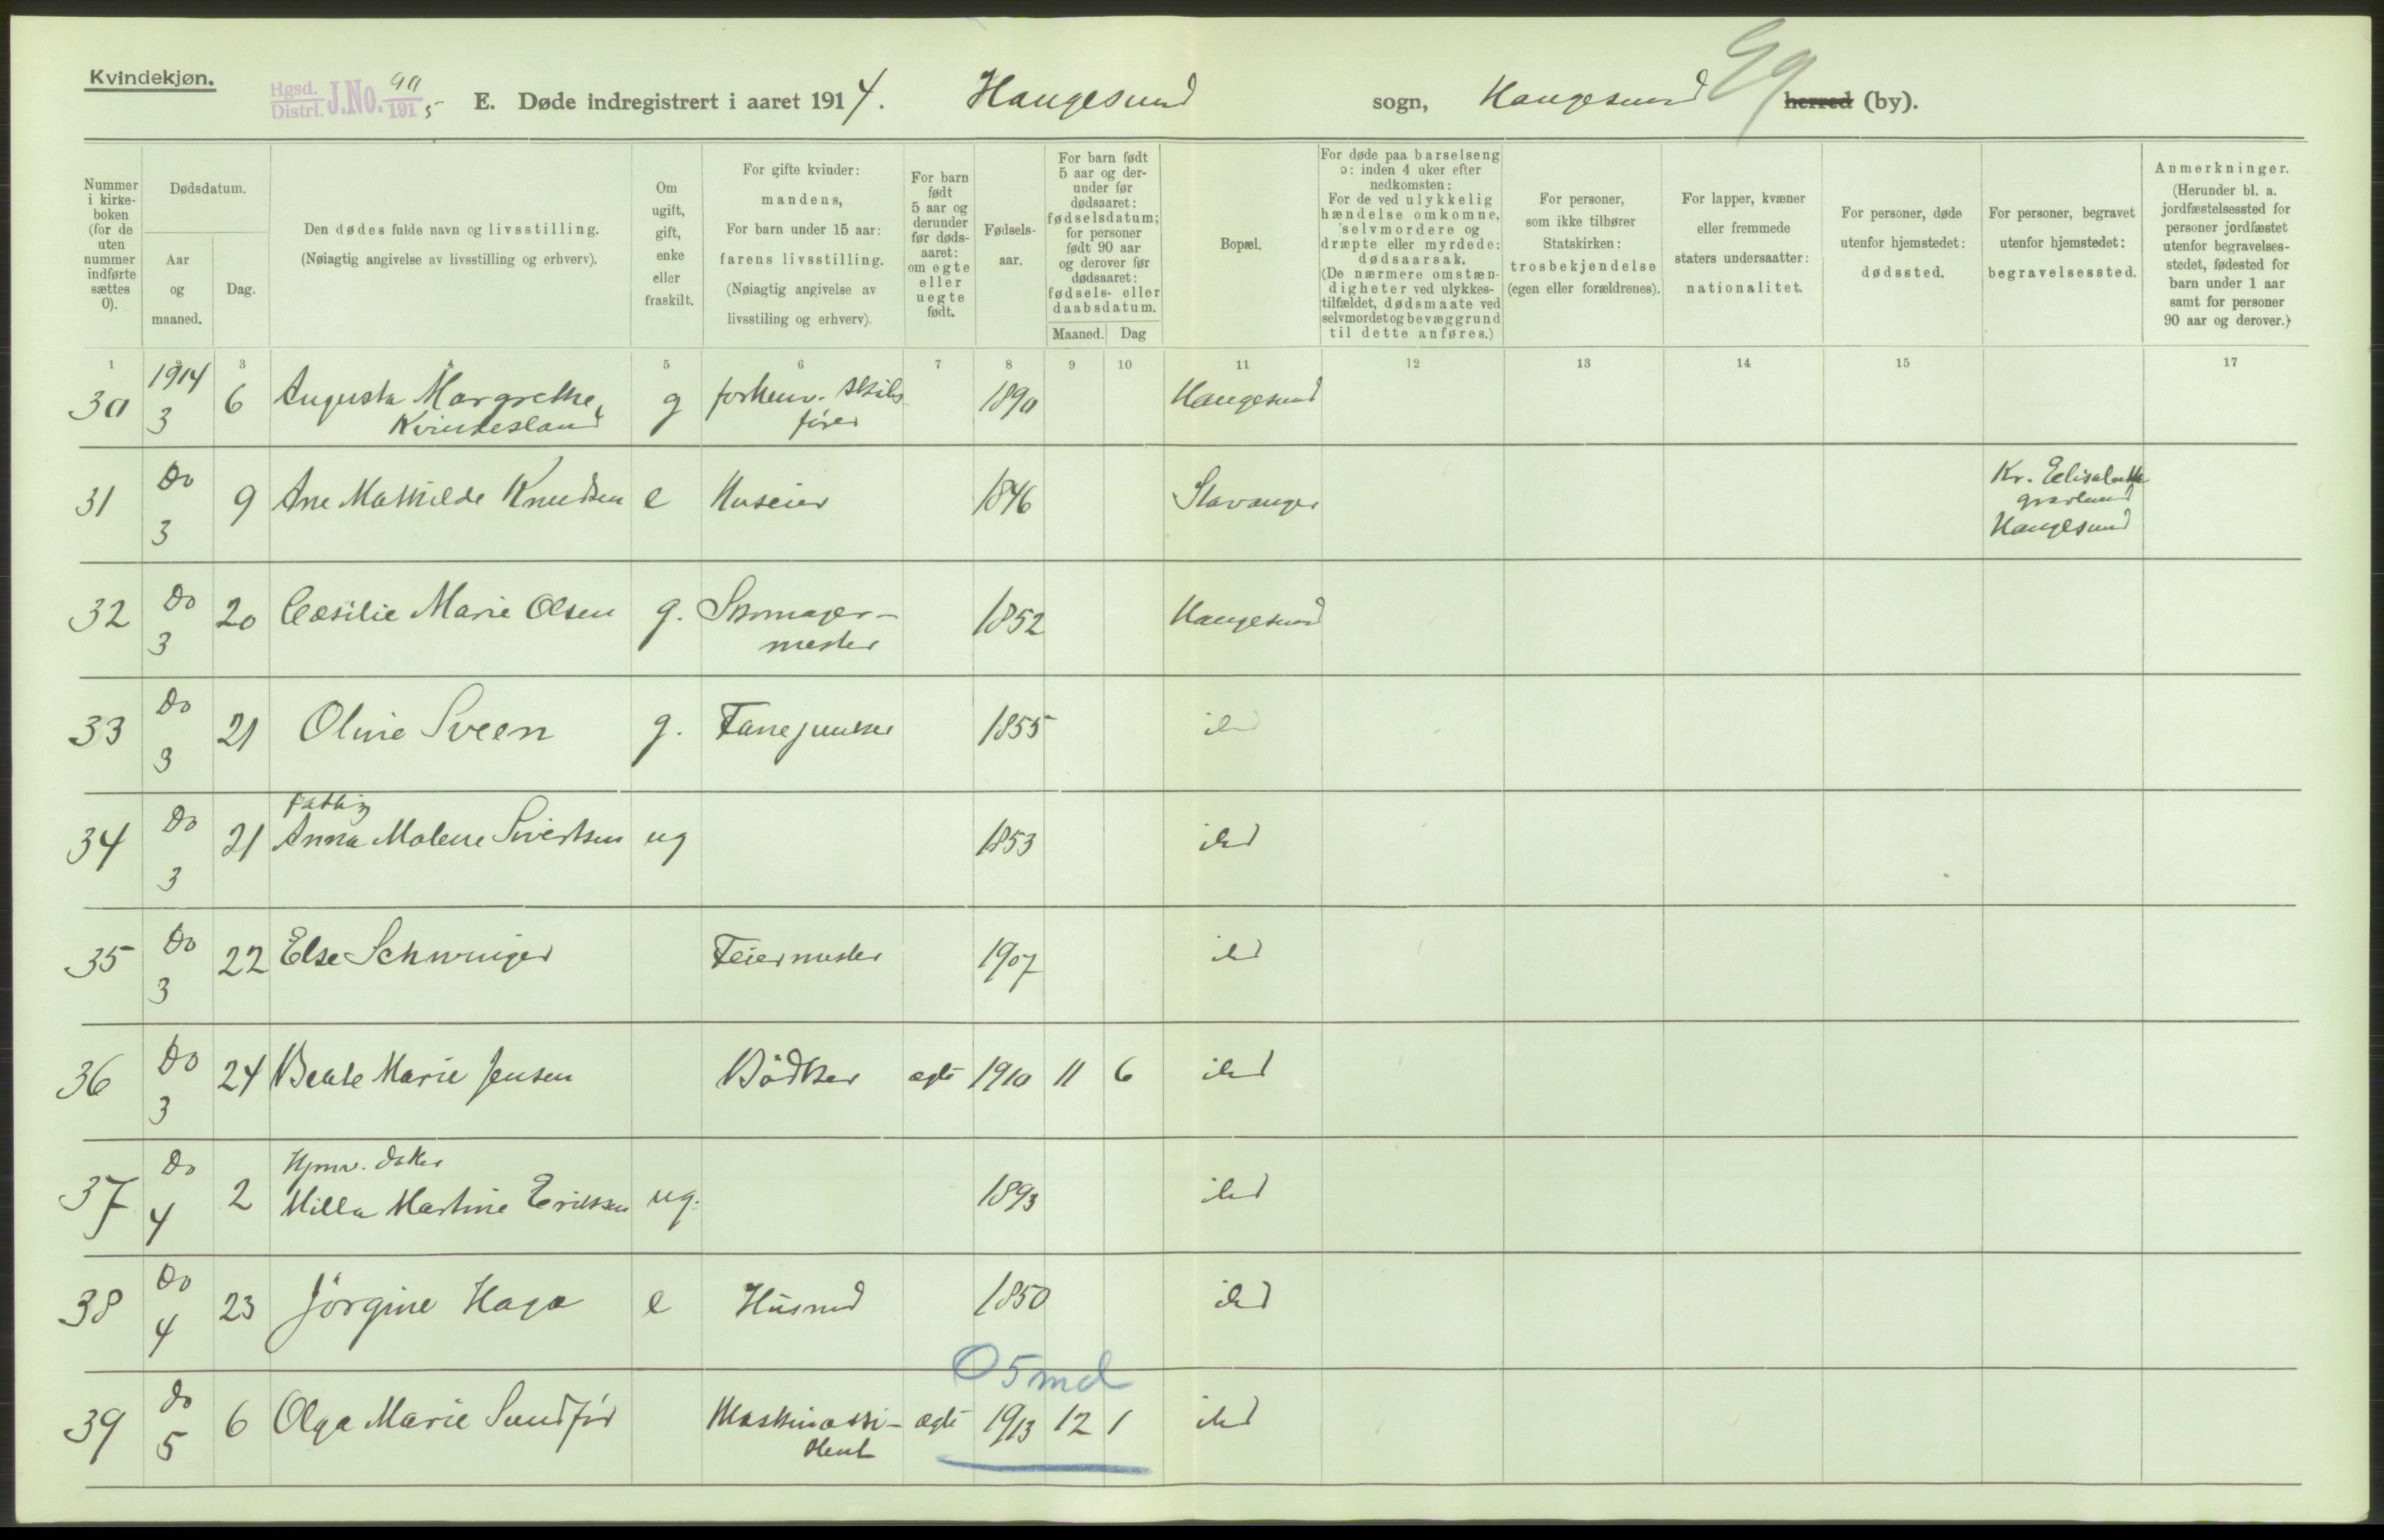 Kvindekjøn.
Hgsd. Distrl. J.No. 90/1915
E. Døde indregistrert i aaret 1914. Haugesund sogn, Haugesund herred (by).
Nummer i kirkeboken (for de uten nummer indførte sættes 0).
Dødsdatum.
Aar og maaned.
Dag.
Den dødes fulde navn og livsstilling.
(Nøiagtig angivelse av livsstilling og erhverv).
Om ugift, gift, enke eller fraskilt.
For gifte kvinder: mandens, For barn under 15 aar: farens livsstilling.
(Nøiagtig angivelse av livsstiling og erhverv).
For barn født 5 aar og derunder før dødsaaret: om egte eller uegte født.
Fødselsaar.
For barn født 5 aar og derunder før dødsaaret: fødselsdatum; for personer født 90 aar og derover før dødsaaret: fødsels- eller daabsdatum.
Maaned. Dag
Bopæl.
For døde paa barselseng ɔ: inden 4 uker efter nedkomsten: For de ved ulykkelig hændelse omkomne, selvmordere og dræpte eller myrdede: dødsaarsak.
(De nærmere omstændigheter ved ulykkestilfældet, dødsmaate ved selvmordet og bevæggrund til dette anføres.)
For personer, som ikke tilhører Statskirken: trosbekjendelse (egen eller forældrenes).
For lapper, kvæner eller fremmede staters undersaatter: nationalitet.
For personer, døde utenfor hjemstedet: dødssted.
For personer, begravet utenfor hjemstedet: begravelsessted.
Anmerkninger.
(Herunder bl. a. jordfæstelsessted for personer jordfæstet utenfor begravelsesstedet, fødested for barn under 1 aar samt for personer 90 aar og derover.)
1 3 5 6 7 8 9 10 11 12 13 14 15 17
30 1914 3 6 Augusta Margrethe Kvindesland g forhenv. skibsfører 1890 Haugesund
31 Do 3 9 Ane Mathilde Knudsen e Huseier 1846 Stavanger Kr. Elisabeth gravlund Haugesund
32 Do 3 20 Cæsilie Marie Olsen g. Skomagermester 1852 Haugesund
33 Do 3 21 Oline Sveen g. Fanejunker 1855 ibd
34 Do 3 21 Fattig Anna Malene Sivertsen ug 1853 ibd
35 Do 3 22 Else Schwinger Feiermester 1907 ibd
36 Do 3 24 Beate Marie Jensen Bødker egte 1910 11 6 ibd
37 Do 4 2 Hjmv. datter Milla Martine Eriksen ug. 1893 ibd
38 Do 4 23 Jörgine Haga e Husmd 1850 ibd
0 5 md
39 do 5 6 Olga Marie Sundför Maskinassistent egte 1913 12 1 ibd